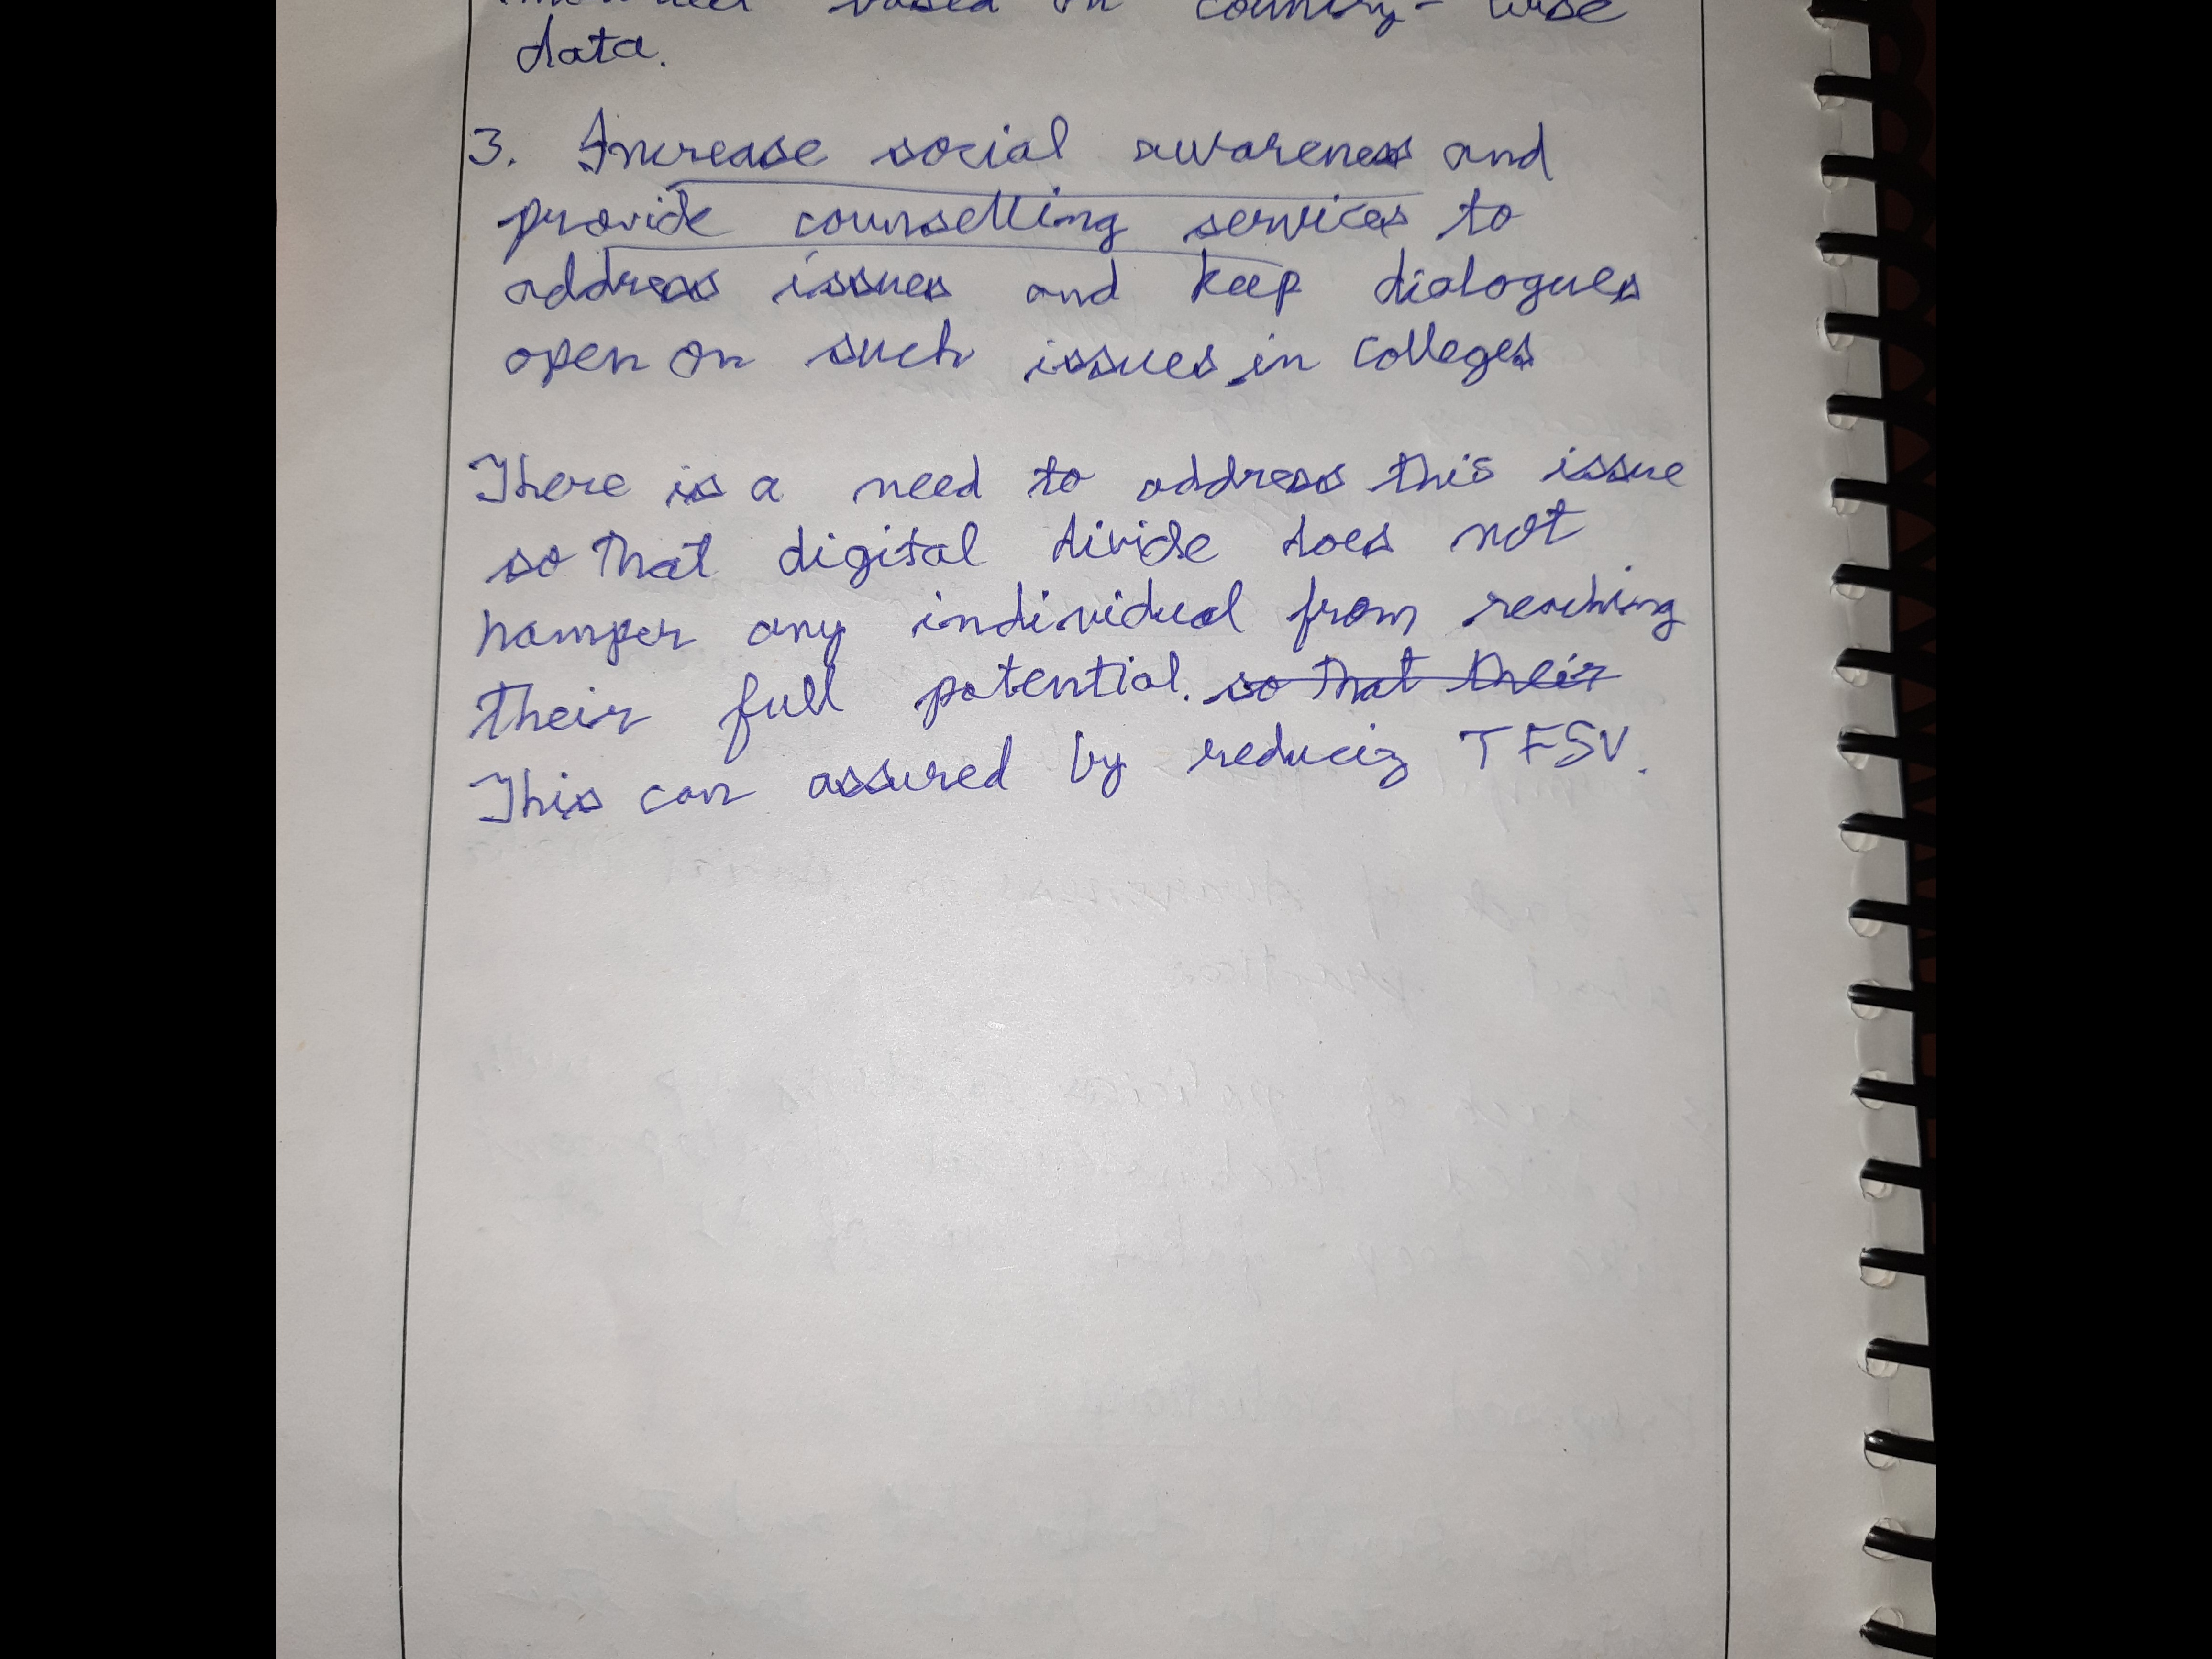 based on country-wise
data.
3. Increase social awareness and
provide counselling services to
address issues and keep dialogues
open on such issues in colleges
There is a need to address this issue
so that digital divide does not
hamper any individual from reaching
their full potential. so that their
This can assured by reducing TFSV.